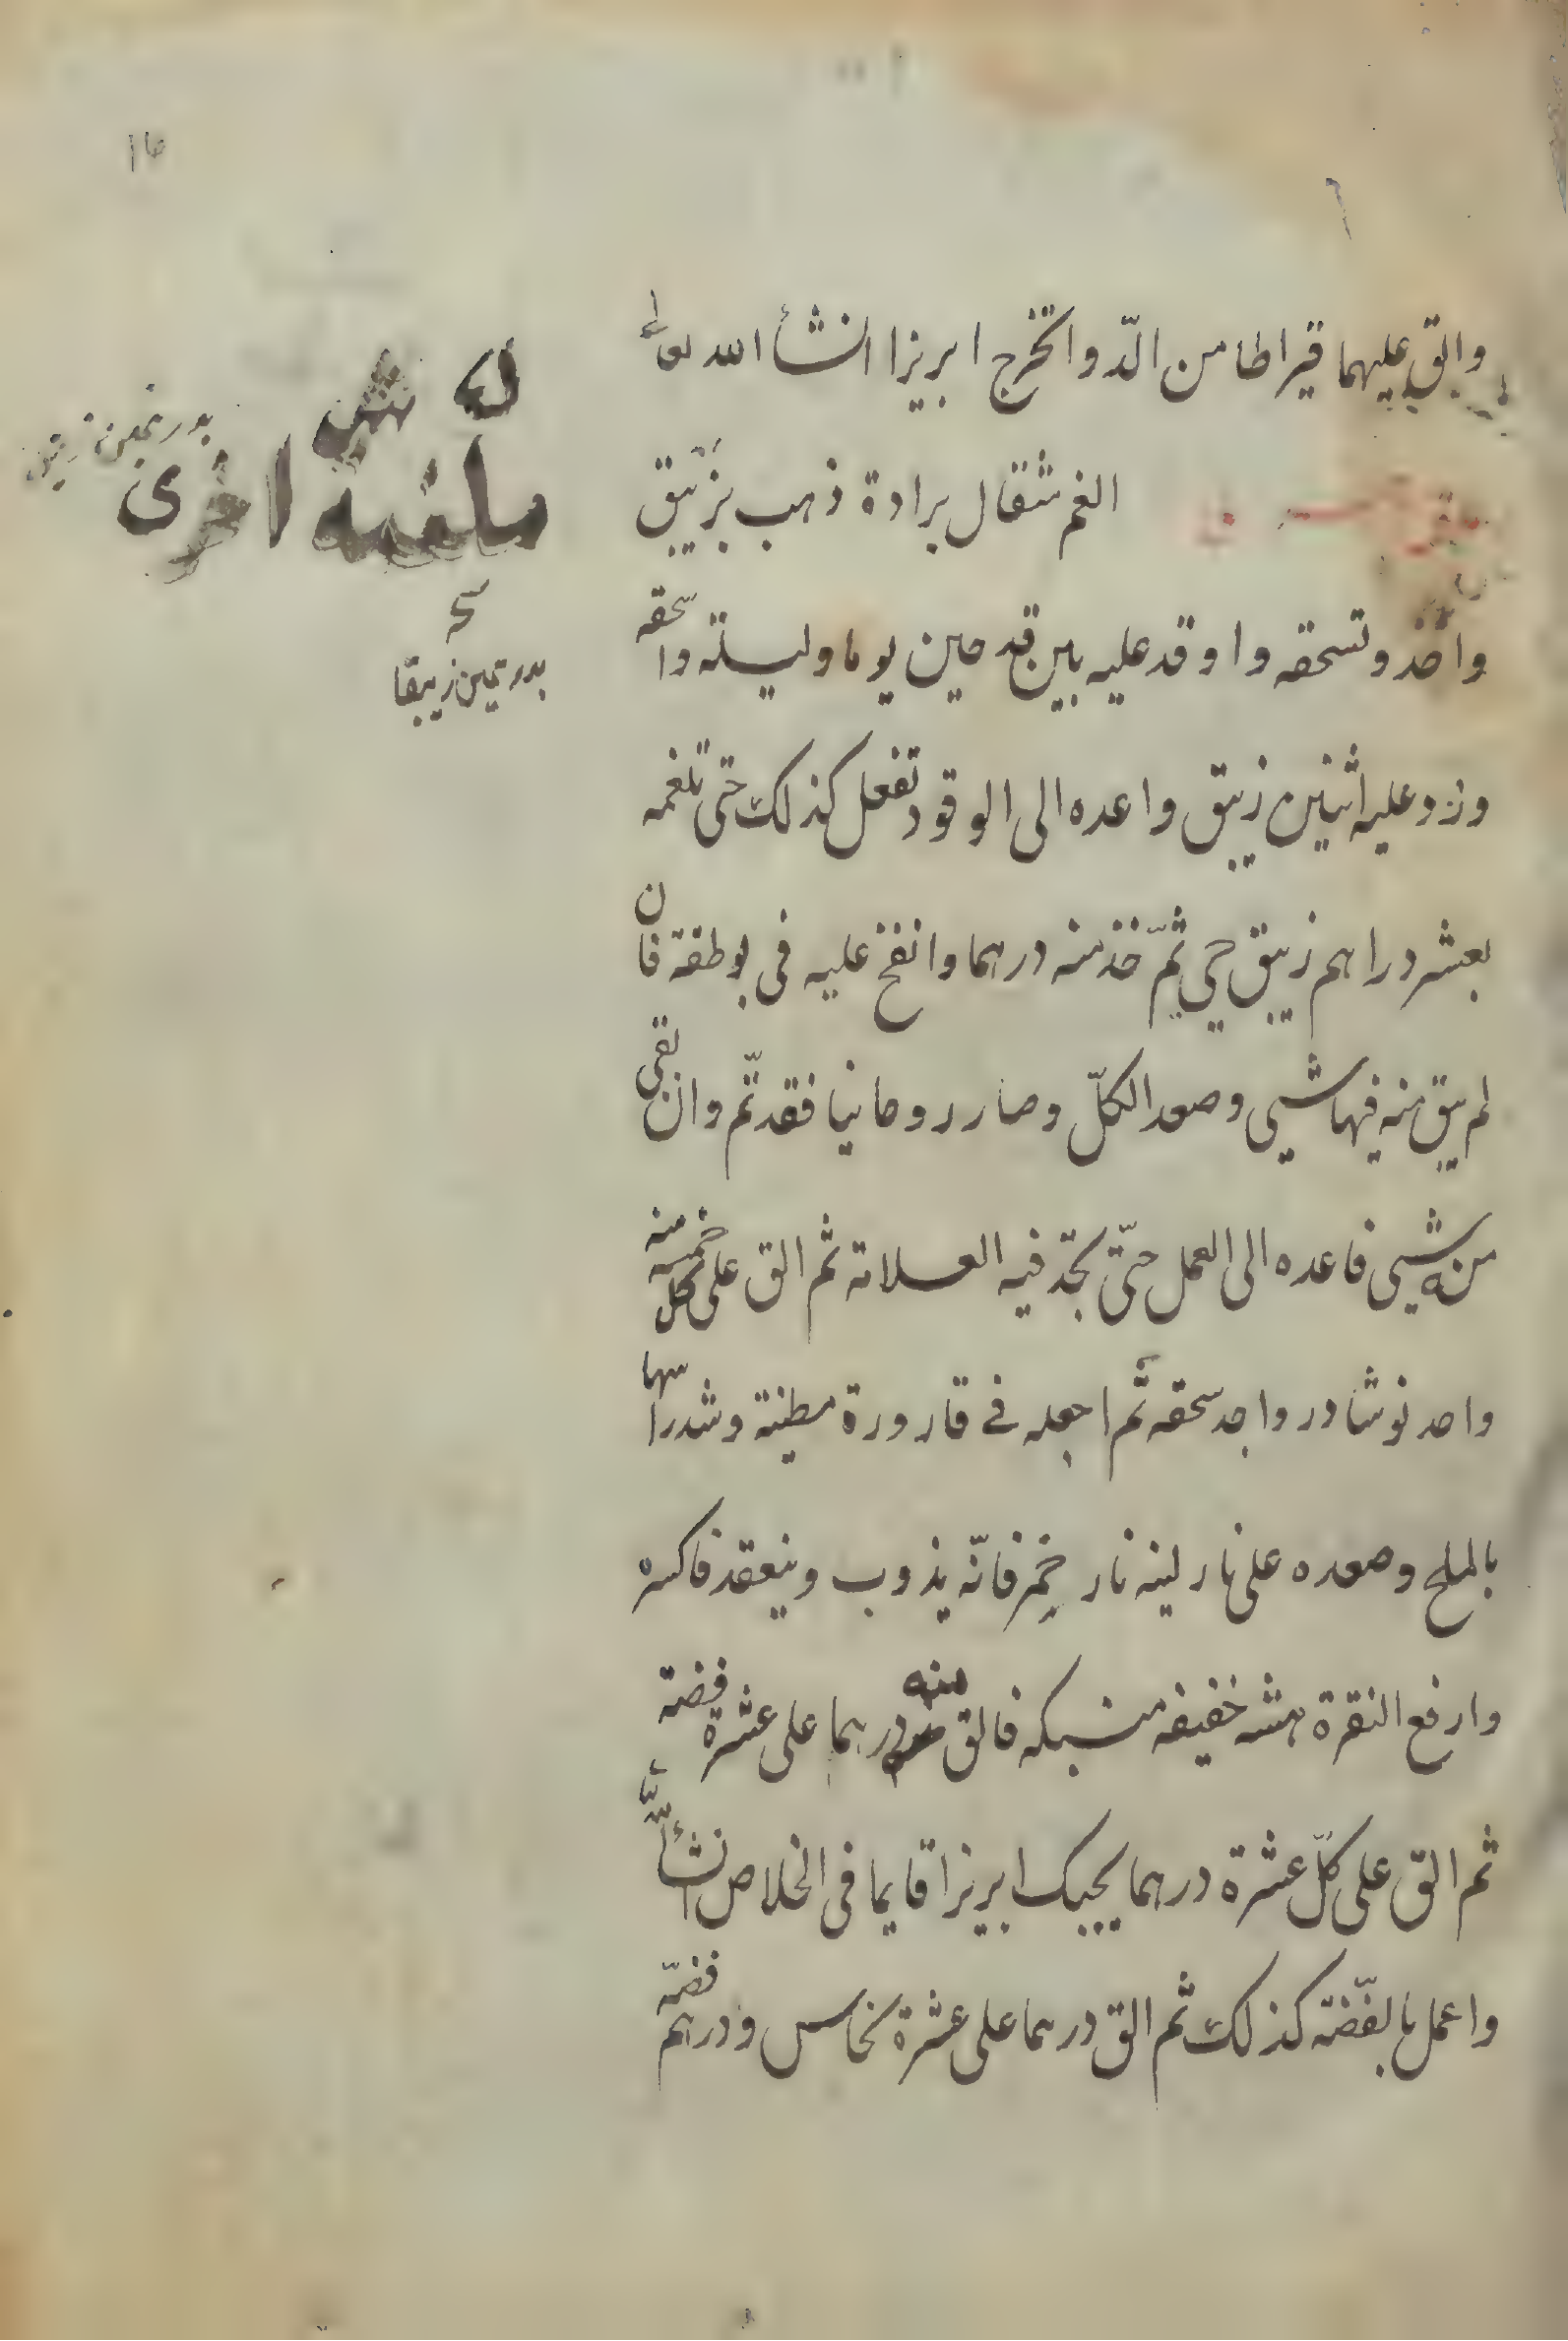 والق عليهما قيراطا من الدّوا تخرج ابريزا انشأ الله تعالى
الغم مثقال برادة ذهب بزيبق
واخذ وتسحقه واوقد عليه بين قدحين يوما وليلة واسحقه
وزد عليه اثنين زيبق واعده الى الوقود تفعل كذلك حتى تلغمه
بعشر دراهم زيبق حي ثمّ خذ منه درهما وانفخ عليه فى بوطقة فان
لم يبق منه فيها شيى وصعد الكلّ وصار روحانيا فقد تّم وان بقى
منه شيى فاعده الى العمل حتّى تجد فيه العلامة ثم الق على كل خمسة منه
واحد نوشادر واجد سحقه ثم اجعله فى قارورة مطينة وشد راسها
بالملح وصعده على نار لينه نار خمر فانّه يذوب وينعقد فاكسره
وارفع النقرة هشه خفيفه منسبكه فالق منه درهما على عشرة فضة
ثم الق على كلّ عشرة درهما يجيك ابريزا قايما فى الخلاص انشأ
واعمل بالفّضة كذلك ثم الق درهما على عشرة نحاس ودرهم فضّة
ملغمة اخرى
بدرهمين زيبقا